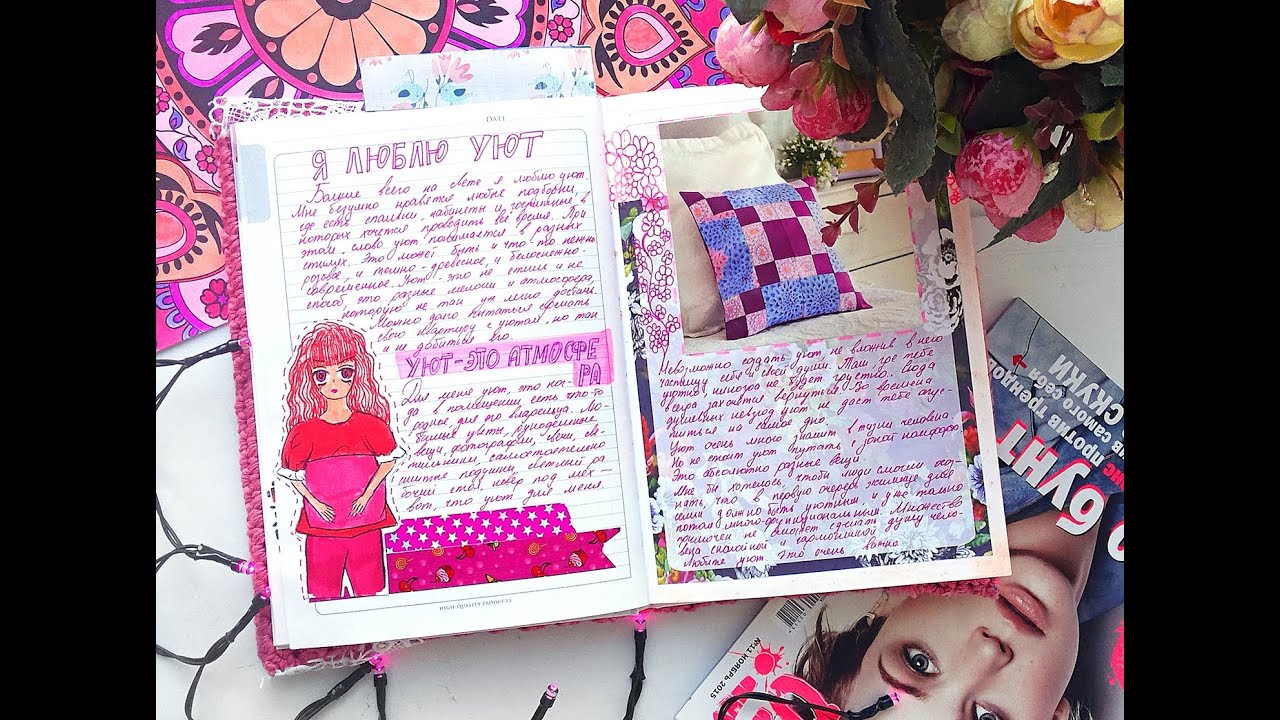 DATE
Я ЛЮБЛЮ УЮТ
Больше всего на свете я люблю уют.
Мне безумно нравятся любые подборки,
где есть спальни, кабинеты и гостинные, в
которых хочется проводить всё время. При
этом слово уют понимается в разных
стилях. Это может быть и что-то нежно
розовое, и темно-древесное, и белоснежно-
современное. Уют - это не стиль и не
способ, это разные мелочи и атмосфера,
которую не так уж легко достать.
Можно долго пытаться сделать
свою квартиру с уютом, но так
и не добиться его.
УЮТ-ЭТО АТМОСФЕ
РА
Для меня уют, это ког-
да в помещении есть что-то
родное для его владельца. Лю-
бимые цветы, рукодельные
вещи, фотографии, свечи, све-
тильники, самостоятельно
сшитые подушки, светлый ра
бочий стол, ковёр под мех -
вот, что уют для меня.
HIGH-QUALITY PRODUCTS
Невозможно создать уют не вложив в него
частицу себя и своей души. Там где тебе
уютно, никогда не будет грустно. Сюда
всегда захочется вернуться. Во времена
душевных невзгод уют не даст тебе опус-
титься на самое дно.
Уют очень много значит в жизни человека.
Но не стоит уют путать с зоной комфорта.
Это абсолютно разные вещи.
Мне бы хотелось, чтобы люди смогли осоз-
нать, что в первую очередь жилище для
семьи должно быть уютным, и уже только
потом много-функциональным. Множество
примочек не сможет сделать душу чело-
века спокойной и гармоничной.
Любите уют. Это очень важно.
против тренд
самого себя
СКУКИ
бунт
№11 НОЯБРЬ 2015